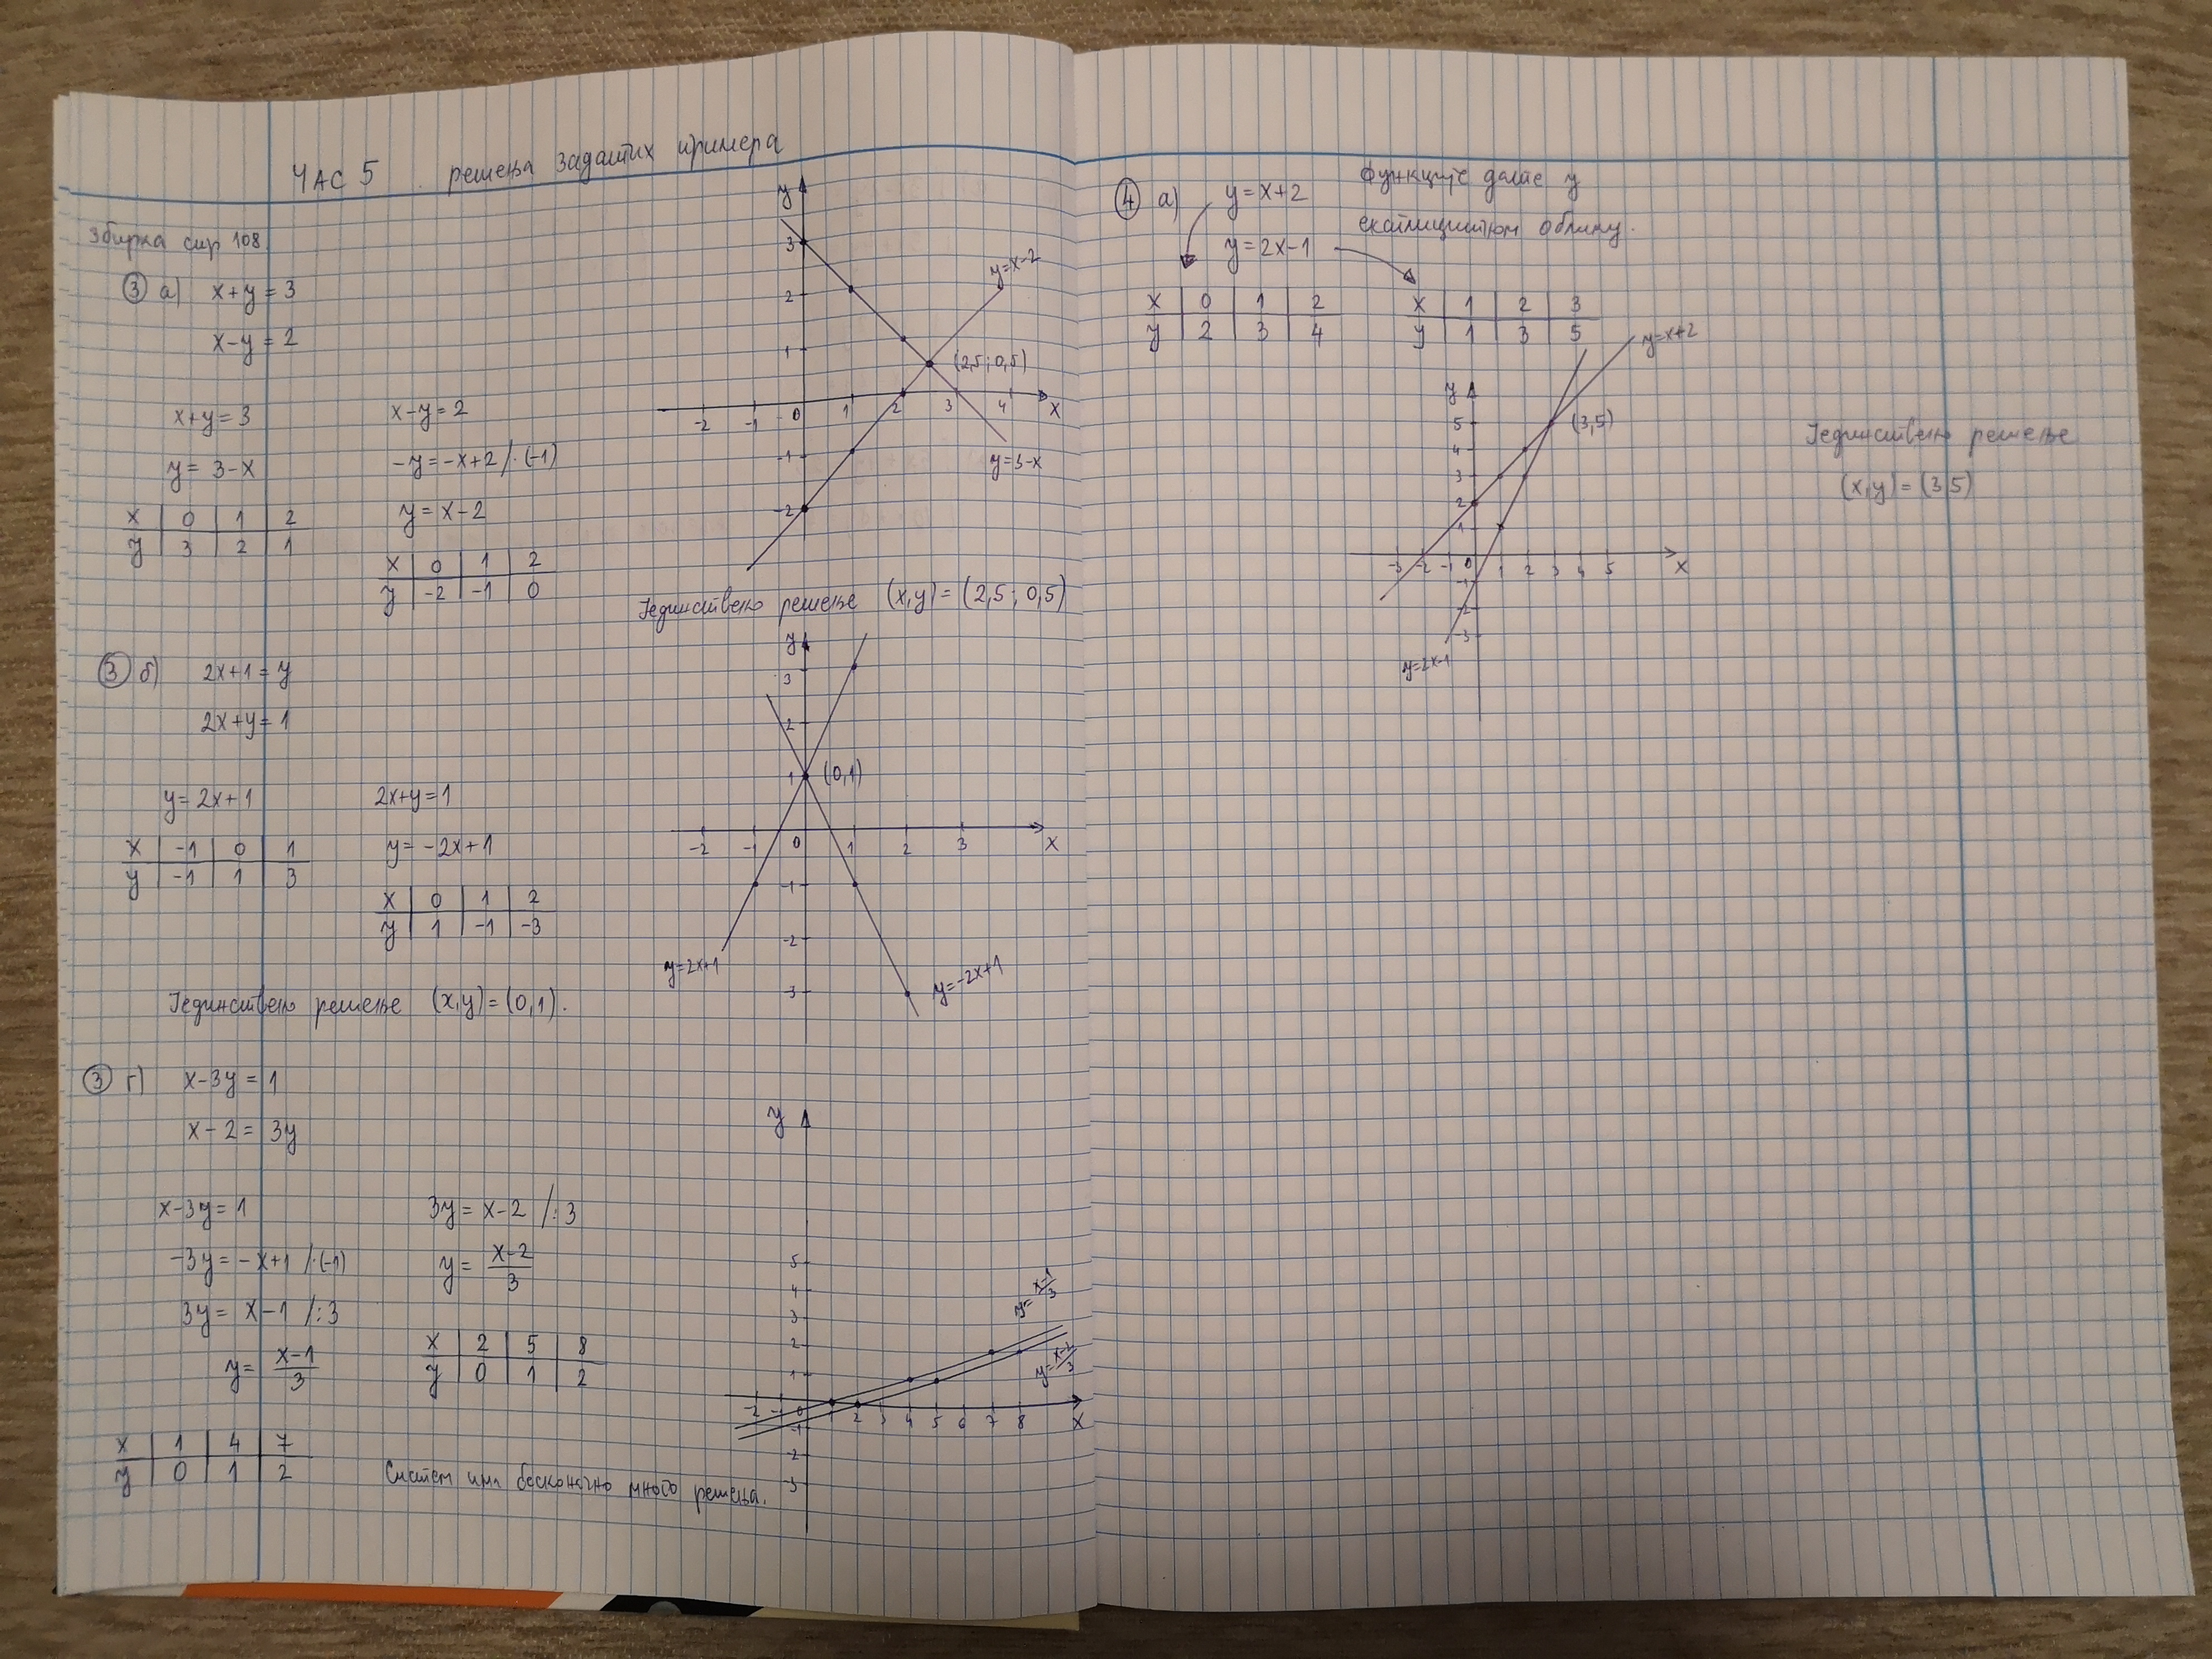 ЧАС 5 . решења задатих примера
Збирка стр 108.
③ а) x+y=3
x-y=2
x+y=3
y=3-x
x 0 1 2
y 3 2 1
x-y=2
-y=-x+2/·(-1)
y=x-2
x 0 1 2
y -2 -1 0
y
3
2
1
-2 -1 0 1 2 3 4 x
-1
-2
y=x-2
(2,5;0,5)
y=3-x
Јединствено решење (x,y)=(2,5;0,5)
③ б) 2x+1=y
2x+y=1
y=2x+1
x -1 0 1
y -1 1 3
2x+y=1
y=-2x+1
x 0 1 2
y 1 -1 -3
y
3
2
1 (0,1)
-2 -1 0 1 2 3 x
-1
-2
-3
y=2x+1
y=-2x+1
Јединствено решење (x,y)=(0,1).
③ г) x-3y=1
x-2=3y
x-3y=1
-3y=-x+1/·(-1)
3y=x-1/:3
y=\frac{x-1}{3}
x 1 4 7
y 0 1 2
3y=x-2/:3
y=\frac{x-2}{3}
x 2 5 8
y 0 1 2
y
5
4
3
2
1
-2 -1 0 1 2 3 4 5 6 7 8 x
-1
-2
-3
y=\frac{x-1}{3}
y=\frac{x-2}{3}
Систем има бесконачно много решења.
④ а) y=x+2
y=2x-1
Функције дате у
експлицитном облику.
x 0 1 2
y 2 3 4
x 1 2 3
y 1 3 5
y
5
4
3
2
1
-3 -2 -1 0 1 2 3 4 5 x
-1
-2
-3
y=x+2
(3,5)
y=2x-1
Јединствено решење
(x,y)=(3,5)